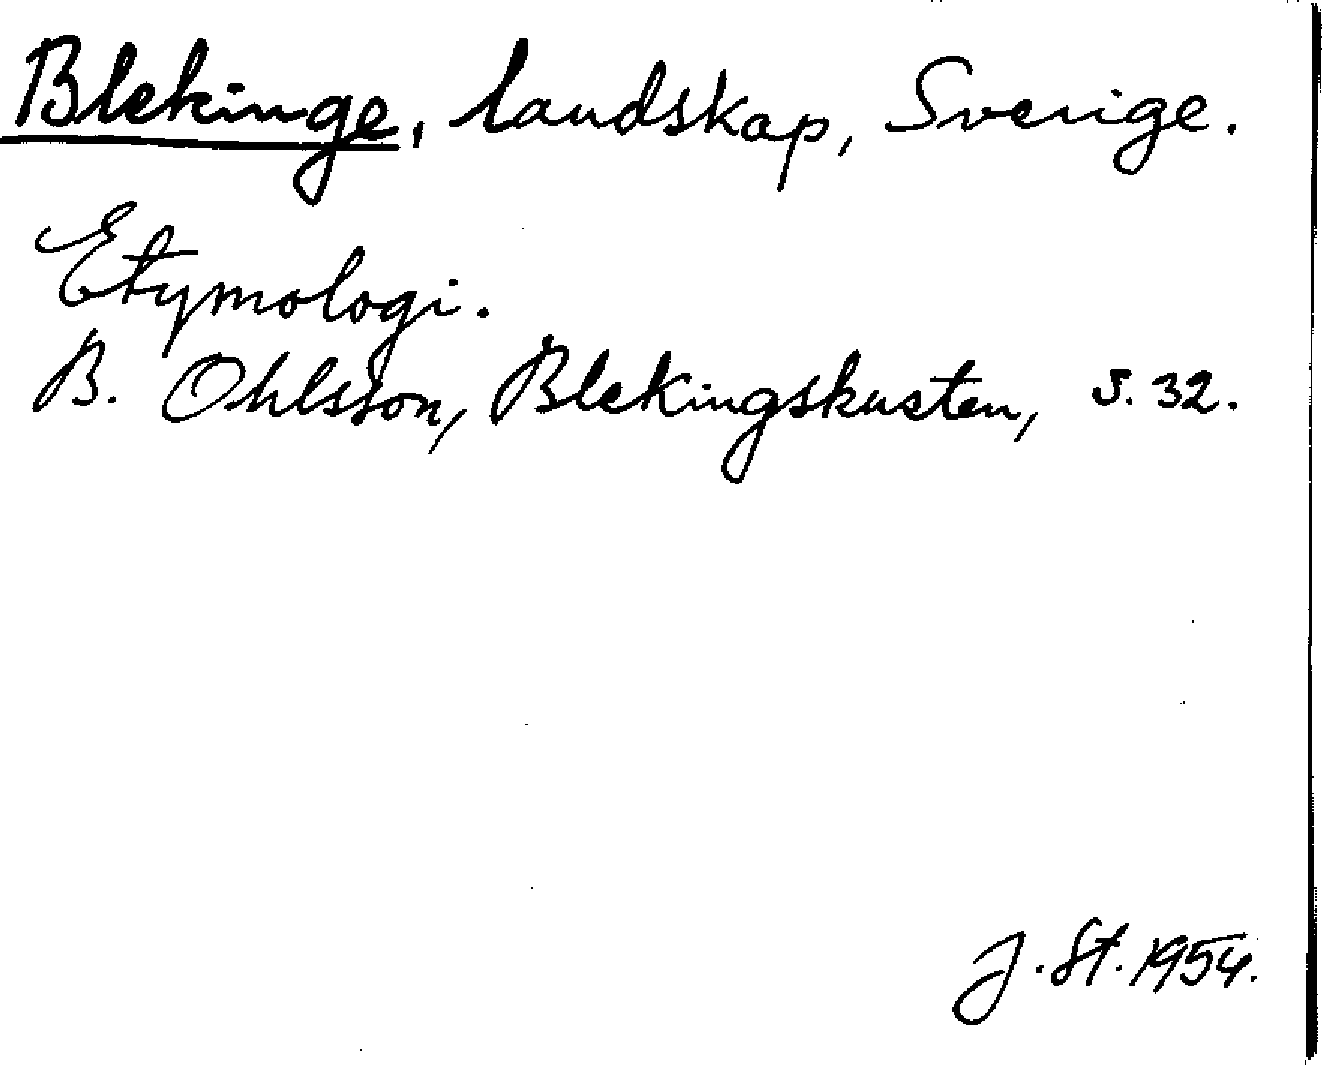 Blekinge, landskap, Sverige.
Etymologi.
B. Ohlsson, Blekingskusten, s. 32.
J. St. 1954.